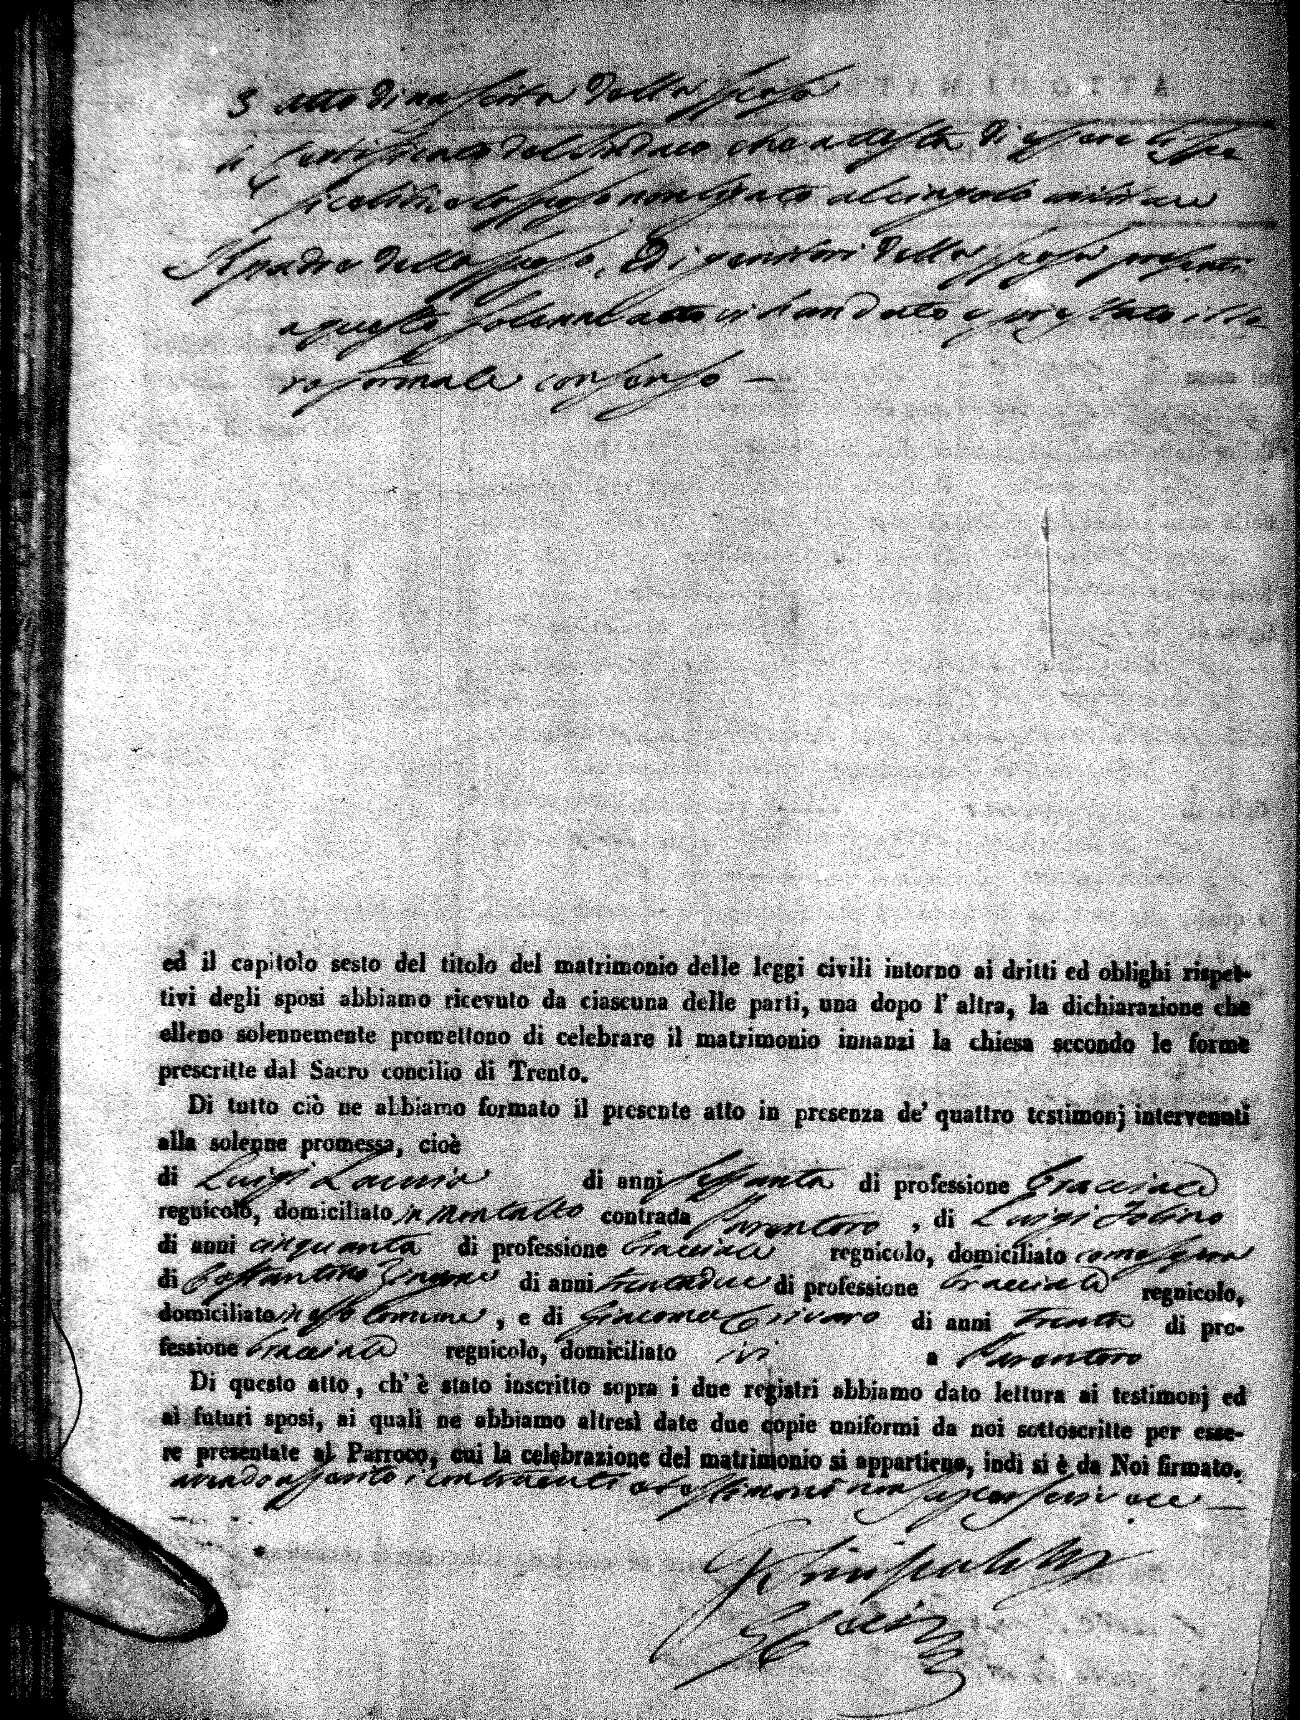 3 Atto di nascita della sposa
4 Certificato del Sindaco che attesta di essere
lo sposo non ligato al cingolo militare
Il padre dello sposo, ed i genitori della sposa presenti
a questo solenne atto vi han dato e prestato il lo
ro formale consenso —
ed il capitolo sesto del titolo del matrimonio delle leggi civili intorno ai dritti ed oblighi rispet-
tivi degli sposi abbiamo ricevuto da ciascuna delle parti, una dopo l' altra, la dichiarazione che
elleno solennemente promettono di celebrare il matrimonio innanzi la chiesa secondo le forme
prescritte dal Sacro concilio di Trento.
Di tutto ciò ne abbiamo formato il presente atto in presenza de' quattro testimonj intervenuti
alla solenne promessa, cioè
di Luigi di anni sessanta di professione bracciale
regnicolo, domiciliato in Montalto contrada Parantoro , di Luigi
di anni cinquanta di professione bracciale regnicolo, domiciliato come sopra
di Costantino Zingone di anni trentadue di professione bracciale regnicolo,
domiciliato in esso Comune , e di Giacomo Crivaro di anni trenta di pro-
fessione bracciale regnicolo, domiciliato ivi a Parantoro
Di questo atto, ch' è stato inscritto sopra i due registri abbiamo dato lettura ai testimonj ed
ai futuri sposi, ai quali ne abbiamo altresì date due copie uniformi da noi sottoscritte per esse-
re presentate al Parroco, cui la celebrazione del matrimonio si appartiene, indi si è da Noi firmato.
avendo asserito i contraenti e testimoni non saper scrivere —